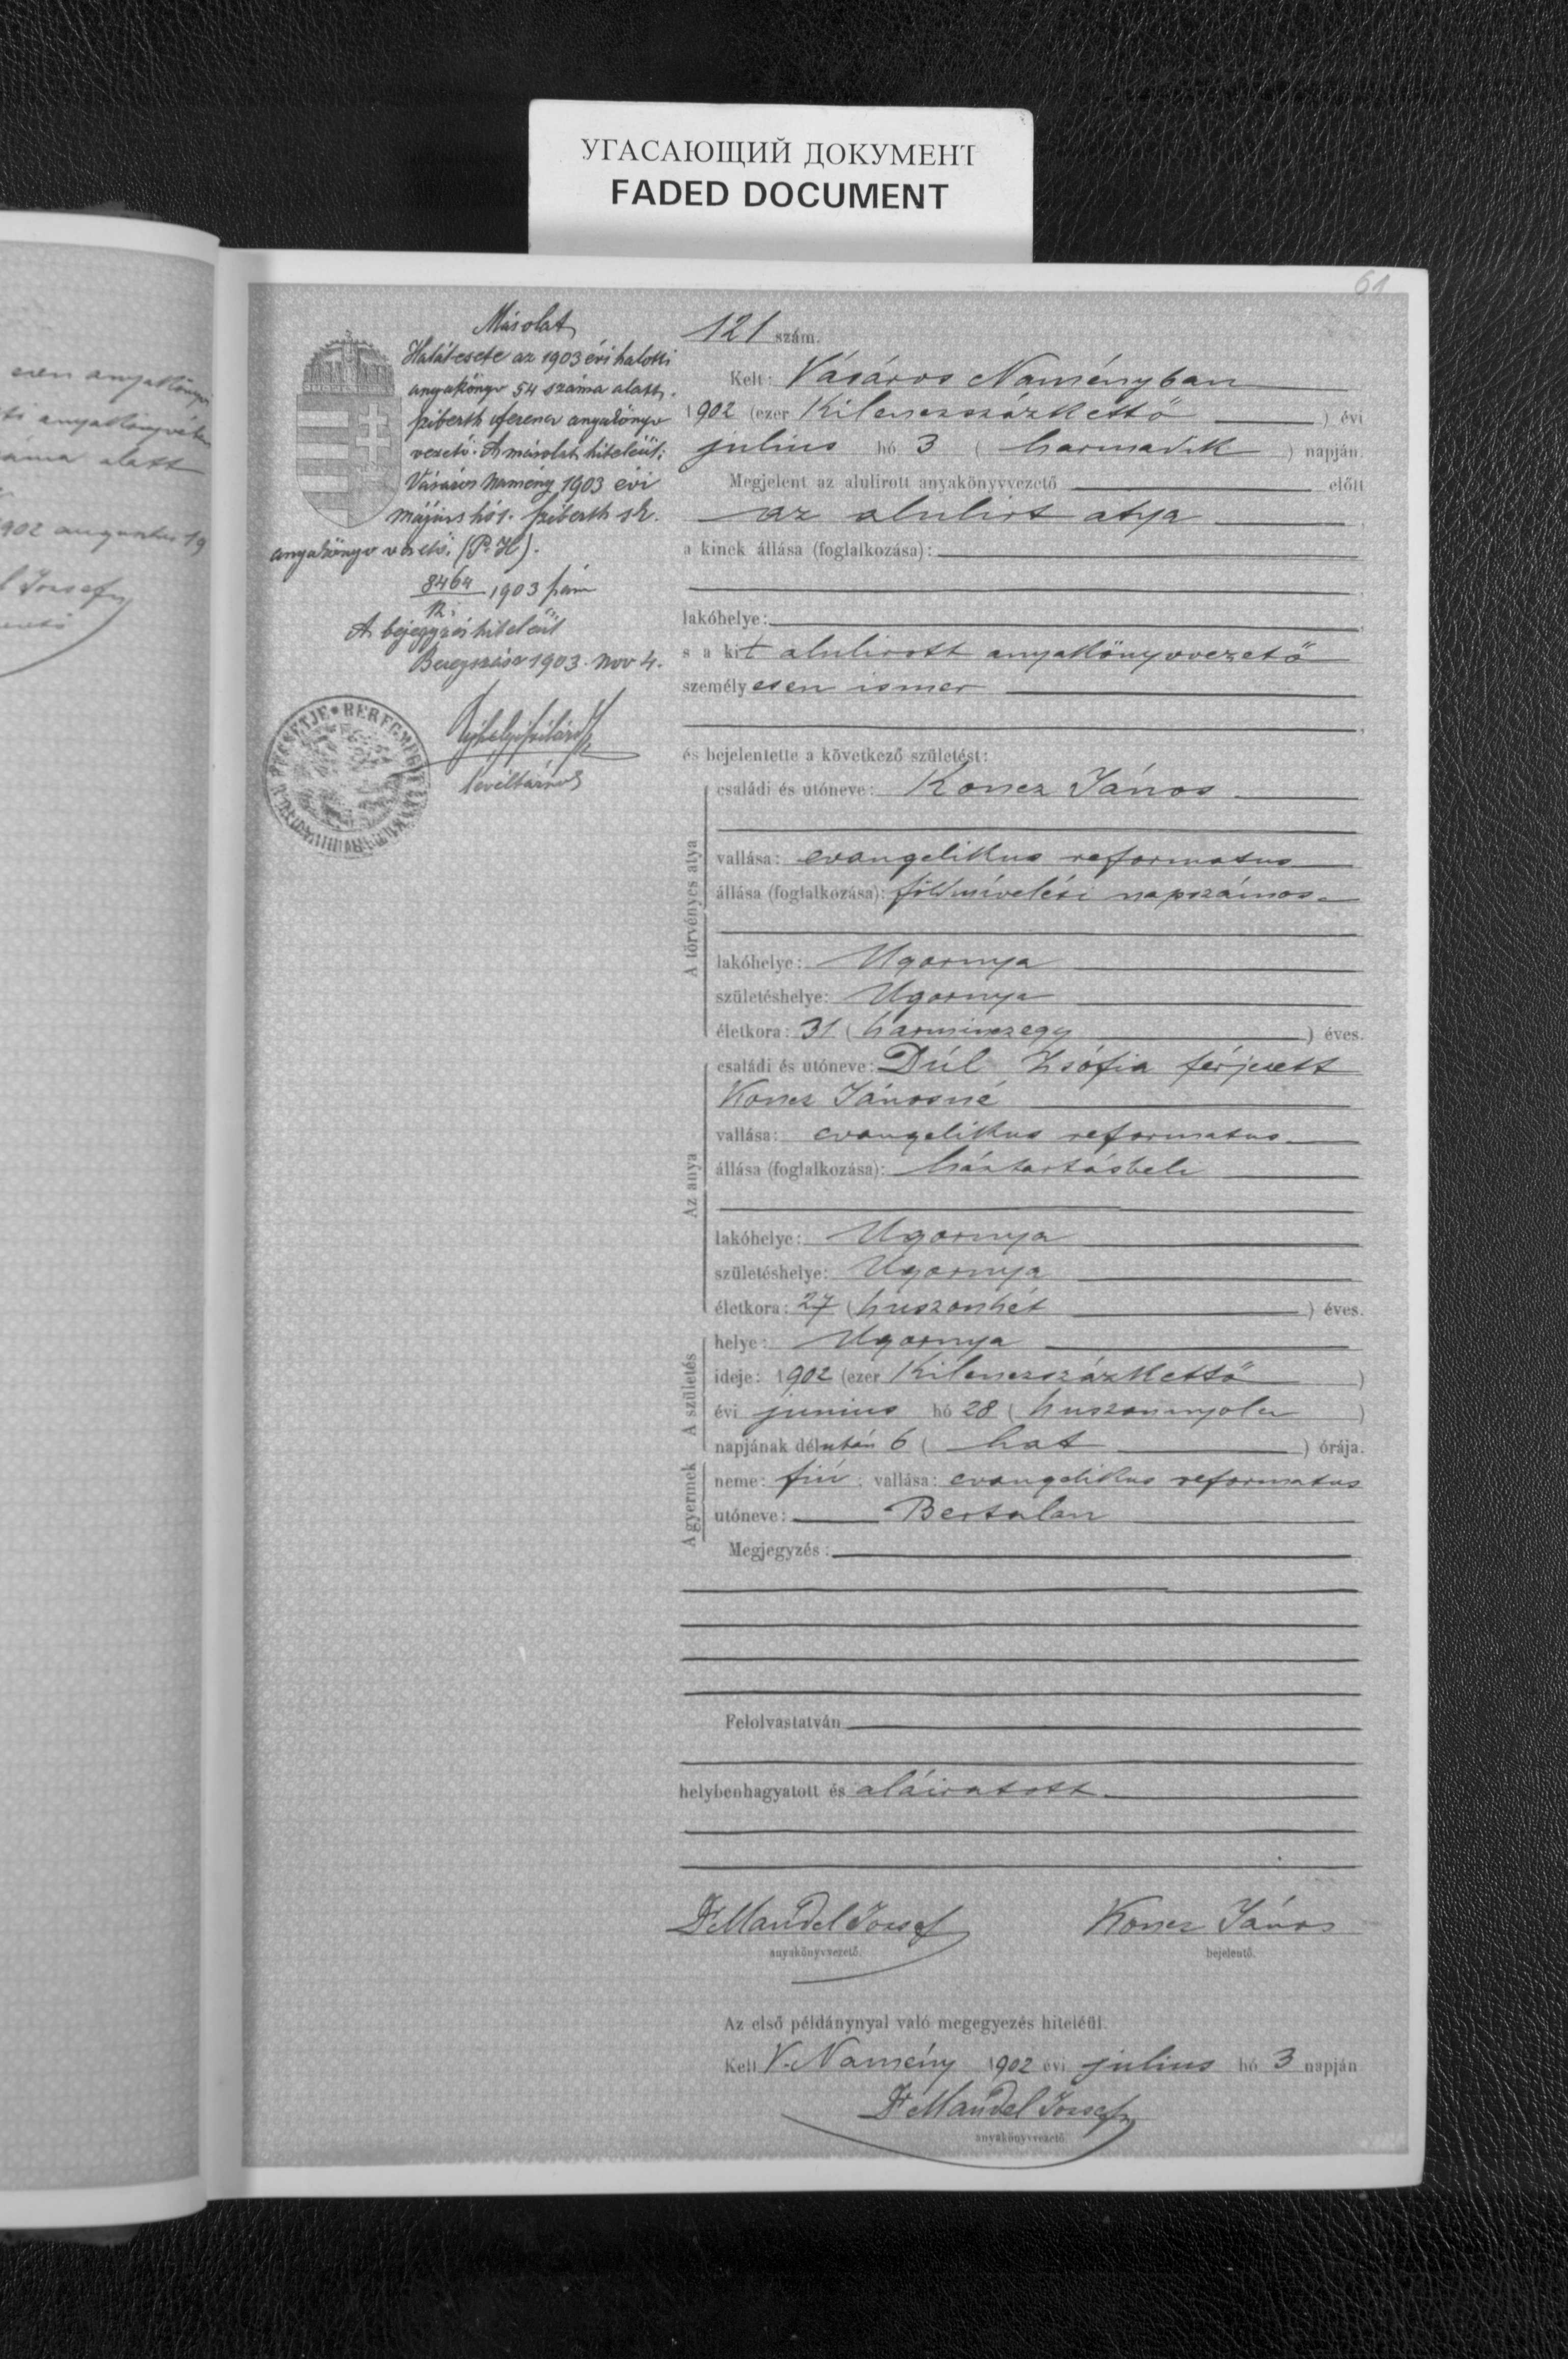 УГАСАЮЩИЙ ДОКУМЕНТ
FADED DOCUMENT
61
esen anyakönyv
ti anyakönyvében
száma alatt
1902 augusztus 19
József
Másolat
Halálesete az 1903 évi halotti
anyakönyv 54 száma alatt.
Sziberth Ferencz anyakönyv
vezető. A másolat hiteléül:
Vásáros Namény 1903 évi
május hó 1. Sziberth sk.
anyakönyv vezető. (P. H).
8464 1903 szám
A bejegyzés hiteléül
Beregszász 1903. Nov 4.
levéltárnok
121 szám.
Kelt: Vásáros Naményban
1902 (ezer Kilenczszázkettő ) évi
julius hó 3 ( harmadik ) napján.
Megjelent az alulirott anyakönyvvezető előtt
az alulirt atya
a kinek állása (foglalkozása):
lakóhelye:
s a kit alulirott anyakönyvvezető
személyesen ismer
és bejelentette a következő születést:
A törvényes atya
családi és utóneve: Koncz János
vallása: evangelikus reformatus
állása (foglalkozása): földmivelési napszámos
lakóhelye: Ugornya
születéshelye: Ugornya
életkora: 31 (harminczegy ) éves.
Az anya
családi és utóneve: Dúl Zsófia férjezett
Koncz Jánosné
vallása: evangelikus reformatus
állása (foglalkozása): háztartásbeli
lakóhelye: Ugornya
születéshelye: Ugornya
életkora: 27 (huszonhét ) éves.
A születés
helye: Ugornya
ideje: 1902 (ezer Kilenczszázkettő )
évi junius hó 28 ( huszonnyolcz )
napjának délután 6 ( hat ) órája.
A gyermek
neme: fiú; vallása: evangelikus reformatus
utóneve: Bertalan
Megjegyzés:
Felolvastatván
helybenhagyatott és aláiratott
Dr Mandel József Koncz János
anyakönyvvezető. bejelentő.
Az első példánynyal való megegyezés hiteléül.
Kelt V. Namény 1902 évi julius hó 3 napján
Dr Mandel József
anyakönyvvezető